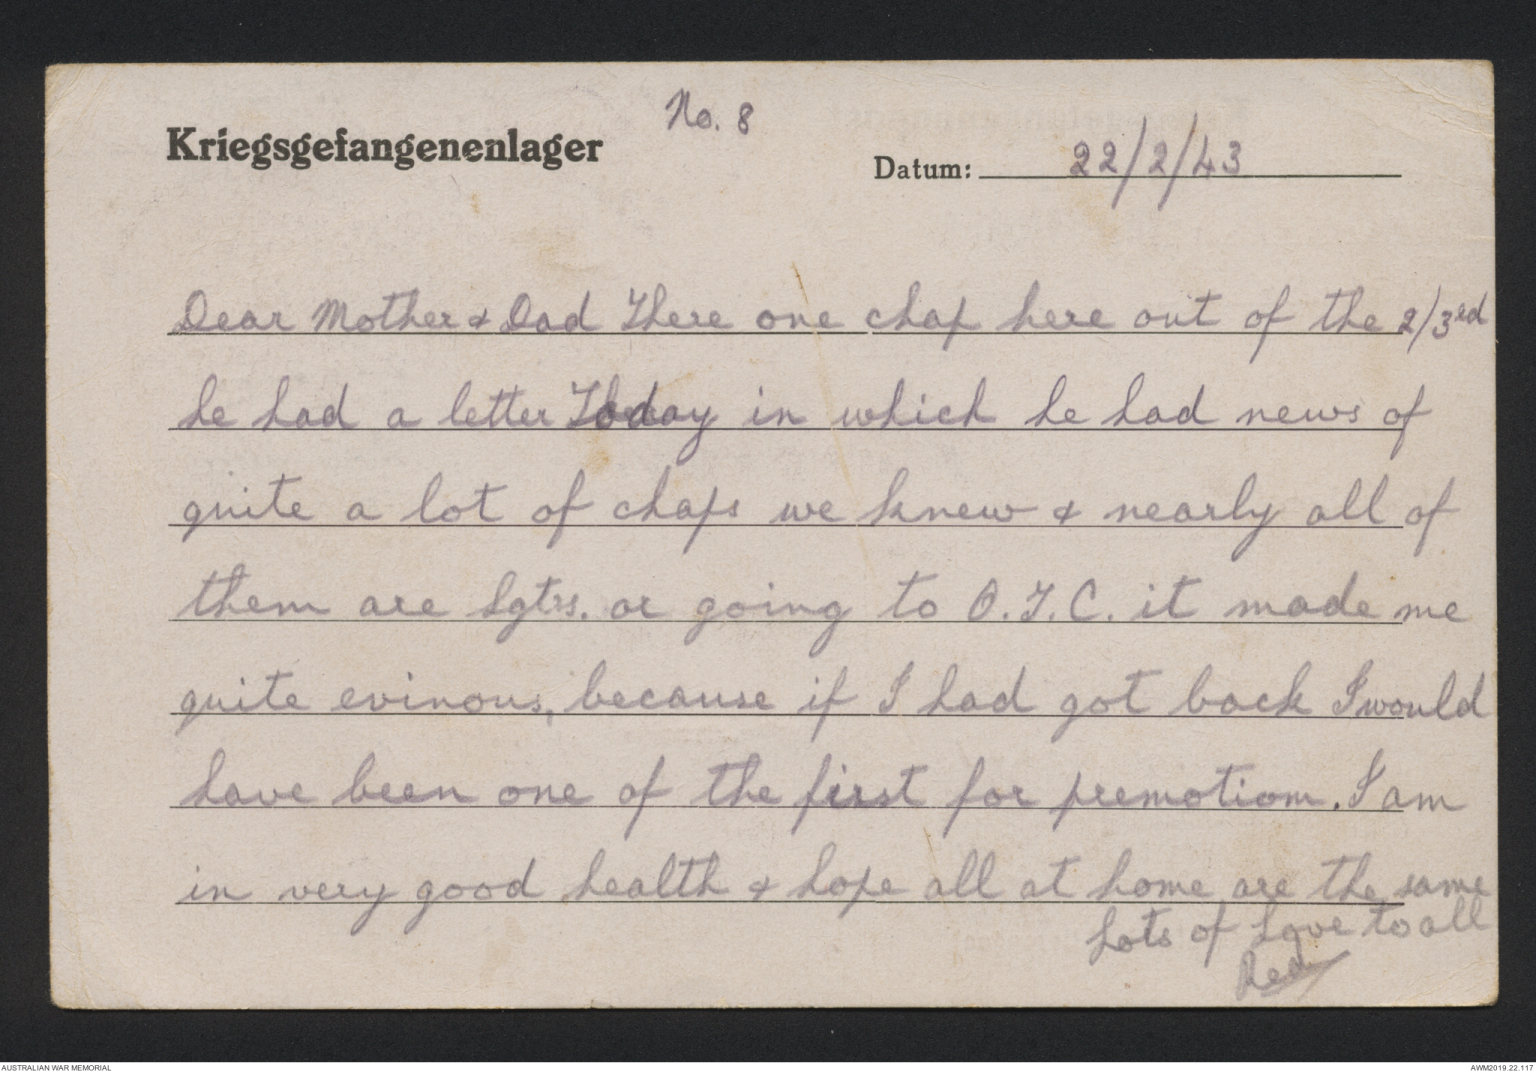 No. 8
Kriegsgefangenenlager
Datum: 22/2/43
Dear Mother & Dad There one chap here out of the 2/3rd
he had a letter Today in which he had news of
quite a lot of chaps we knew & nearly all of
them are Sgtrs. or going to O.T.C. it made me
quite evinous, because if I had got back I would
have been one of the first for premotiom. I am
in very good health & hope all at home are the same
Lots of Love to all
AUSTRALIAN WAR MEMORIAL
AWM2019.22.117